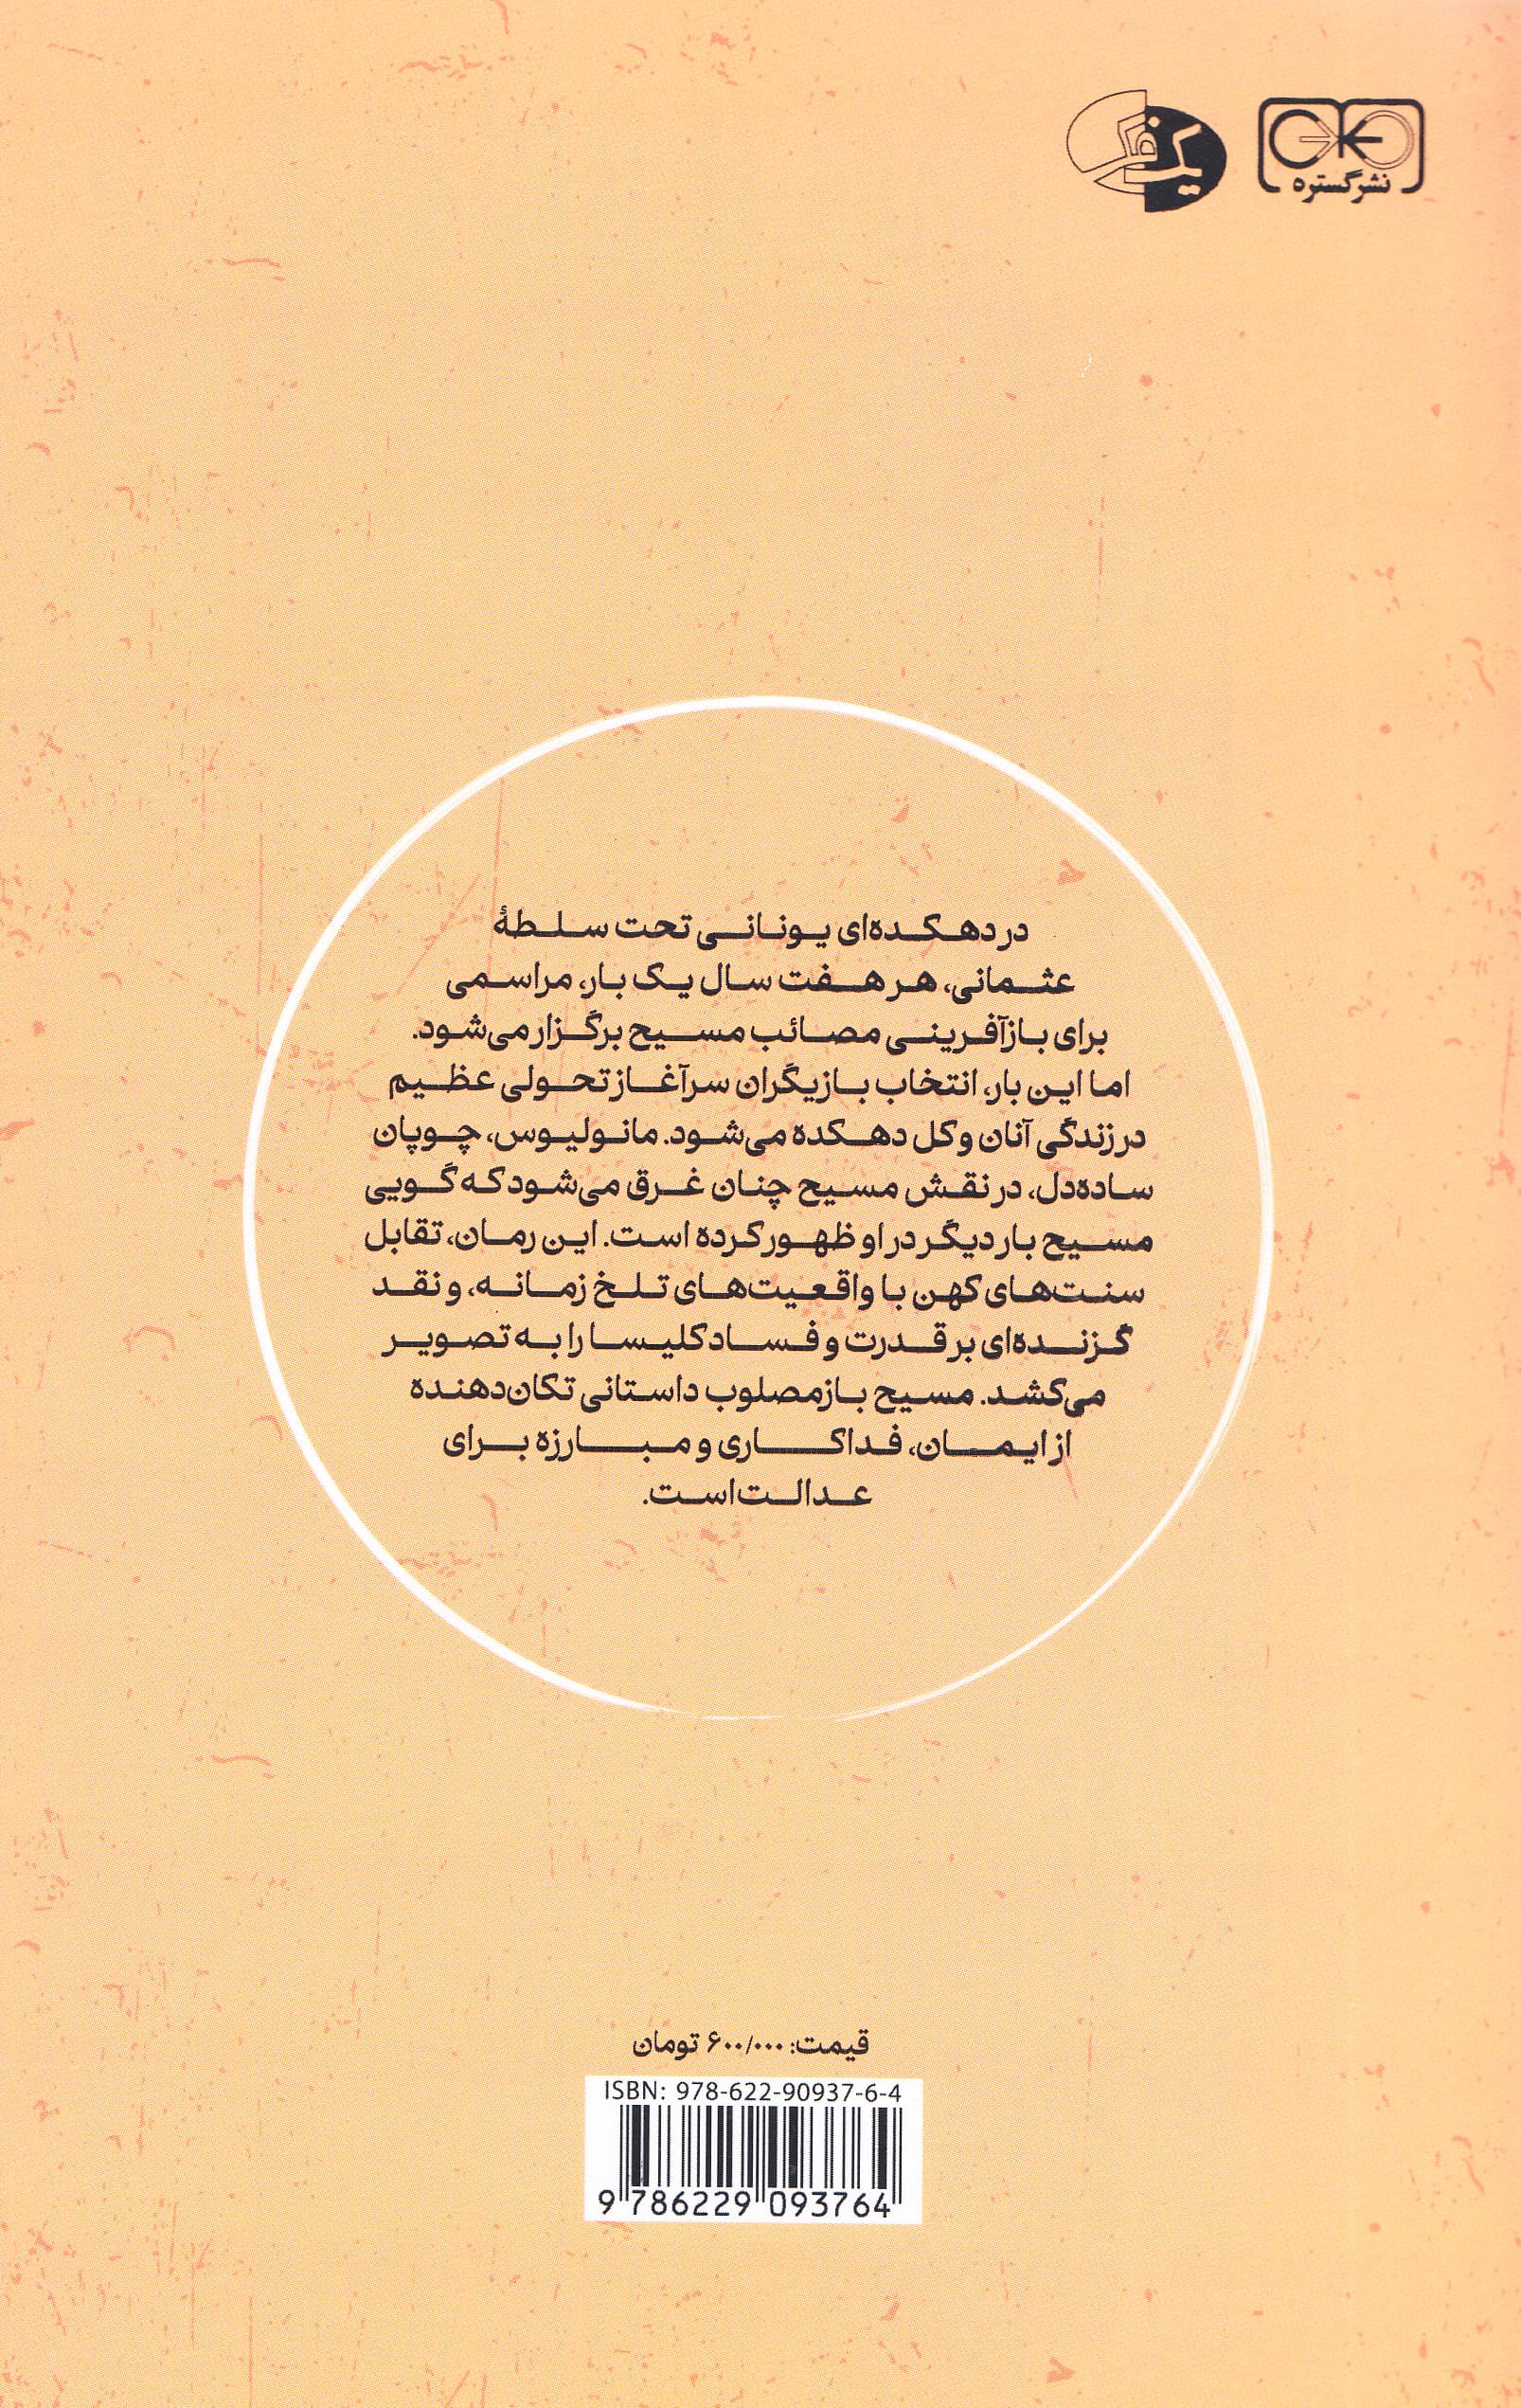 نشر گستره
یک فکر
در دهکده‌ای یونانی تحت سلطهٔ
عثمانی، هر هفت سال یک بار، مراسمی
برای بازآفرینی مصائب مسیح برگزار می‌شود.
اما این بار، انتخاب بازیگران سرآغاز تحولی عظیم
در زندگی آنان و کل دهکده می‌شود. مانولیوس، چوپان
ساده‌دل، در نقش مسیح چنان غرق می‌شود که گویی
مسیح بار دیگر در او ظهور کرده است. این رمان، تقابل
سنت‌های کهن با واقعیت‌های تلخ زمانه، و نقد
گزنده‌ای بر قدرت و فساد کلیسا را به تصویر
می‌کشد. مسیح بازمصلوب داستانی تکان‌دهنده
از ایمان، فداکاری و مبارزه برای
عدالت است.
قیمت: ۶۰۰/۰۰۰ تومان
ISBN: 978-622-90937-6-4
9 786229 093764